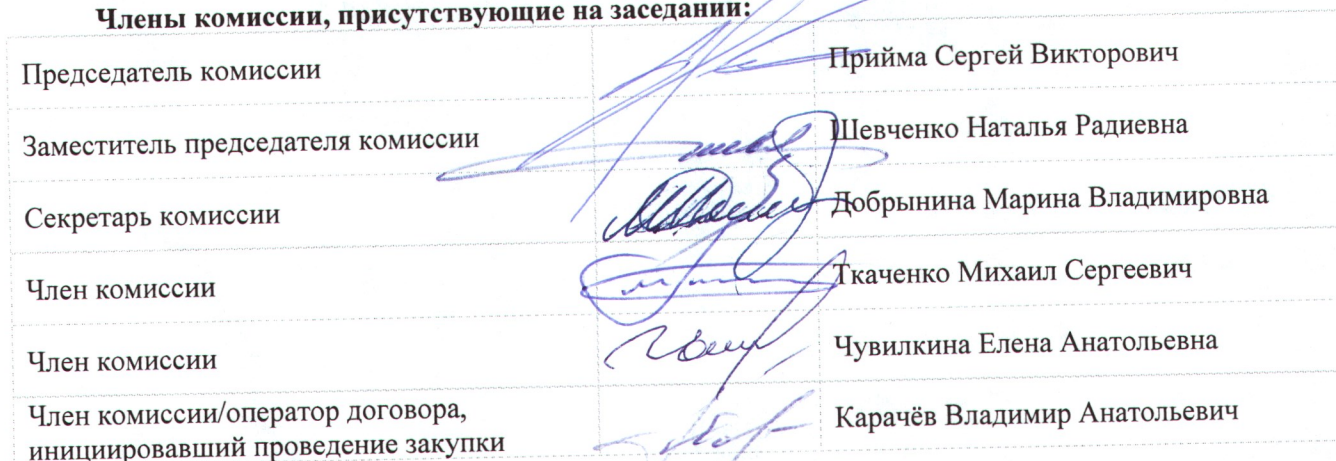 Члены комиссии, присутствующие на заседании:
Председатель комиссии Прийма Сергей Викторович
Заместитель председателя комиссии Шевченко Наталья Радиевна
Секретарь комиссии Добрынина Марина Владимировна
Член комиссии Ткаченко Михаил Сергеевич
Член комиссии Чувилкина Елена Анатольевна
Член комиссии/оператор договора,
инициировавший проведение закупки Карачёв Владимир Анатольевич